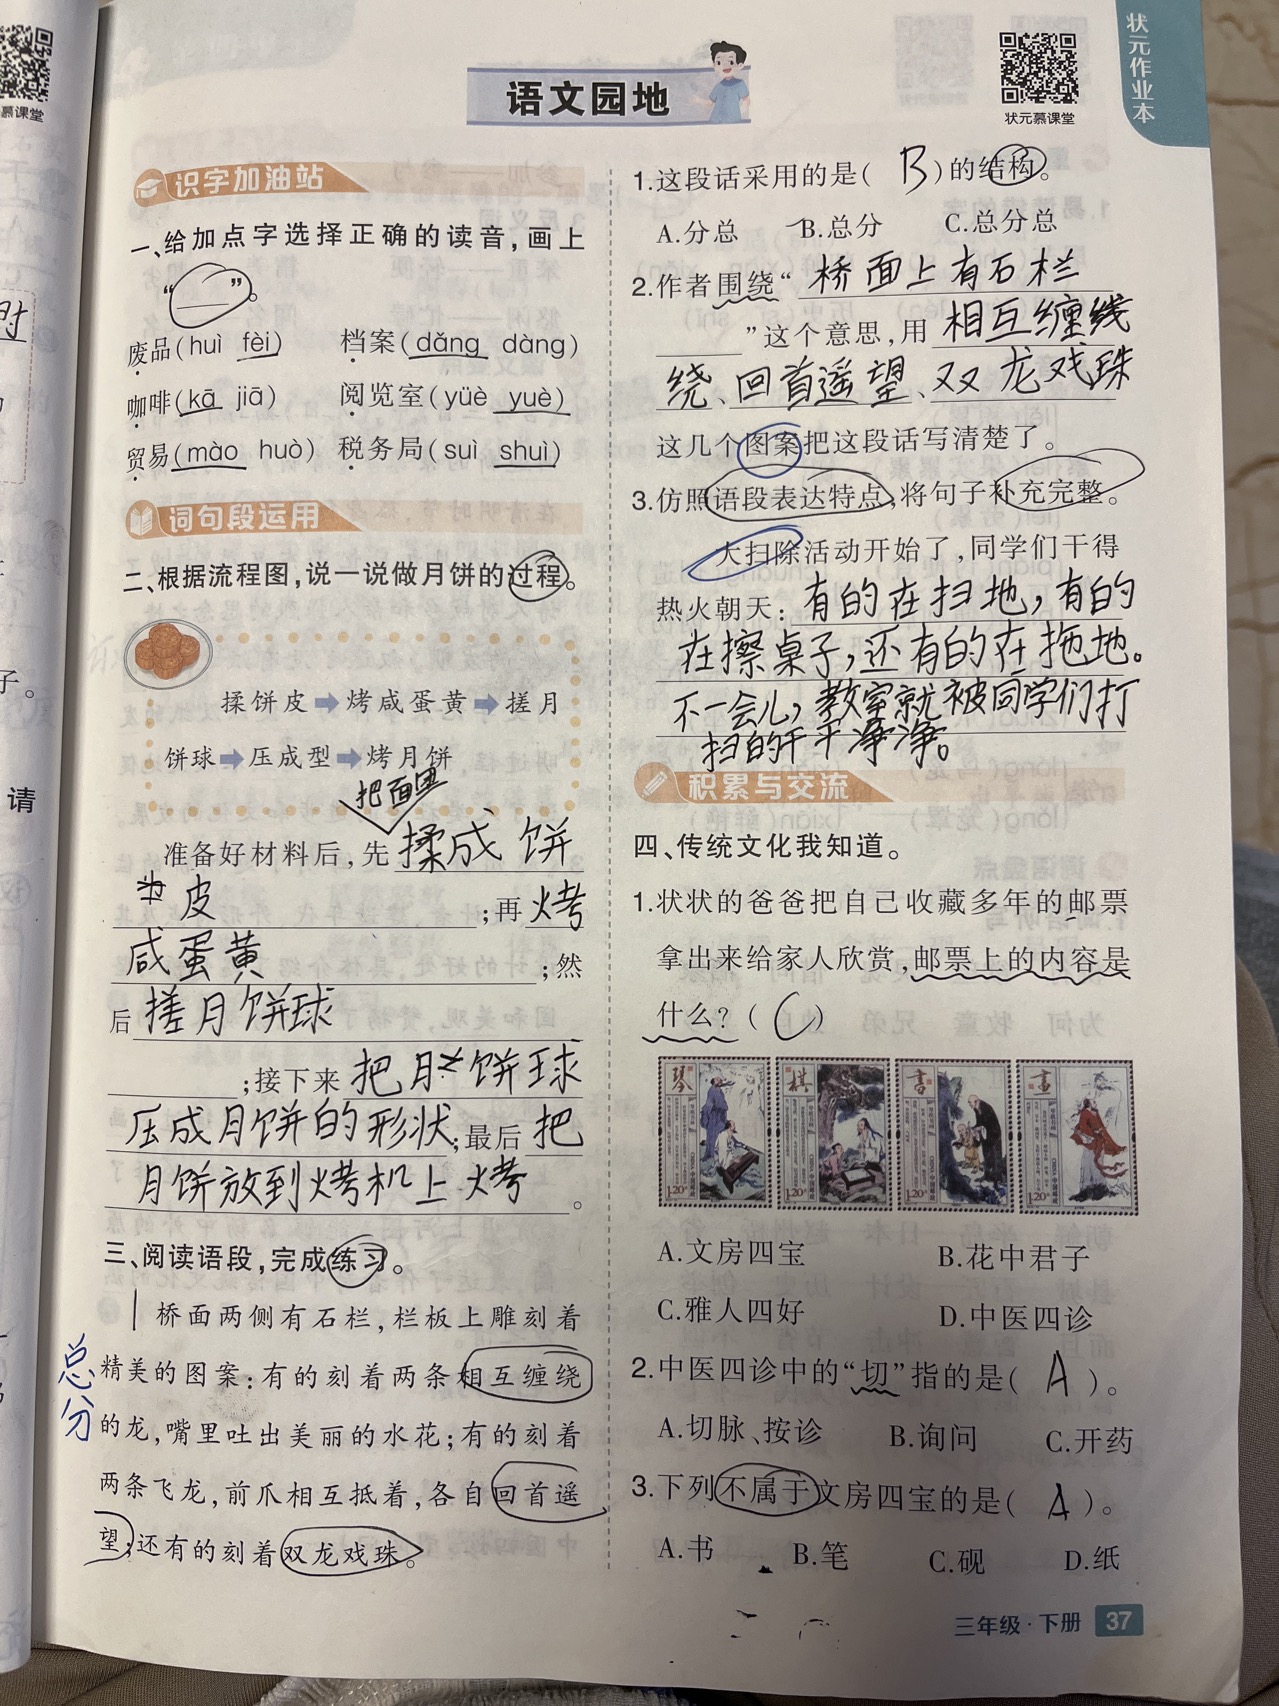 状元作业本
慕课堂
状元慕课堂
语文园地
时
子。
请
识字加油站
一、给加点字选择正确的读音,画上
“____”。
废品(huì fèi) 档案(dǎng dàng)
咖啡(kā jiā) 阅览室(yüè yuè)
贸易(mào huò) 税务局(suì shuì)
词句段运用
二、根据流程图,说一说做月饼的过程。
揉饼皮➡烤咸蛋黄➡搓月
饼球➡压成型➡烤月饼
把面团
准备好材料后,先揉成饼
皮;再烤
咸蛋黄;然
后搓月饼球
;接下来把月饼球
压成月饼的形状;最后把
月饼放到烤机上烤。
三、阅读语段,完成练习。
桥面两侧有石栏,栏板上雕刻着
精美的图案:有的刻着两条相互缠绕
的龙,嘴里吐出美丽的水花;有的刻着
两条飞龙,前爪相互抵着,各自回首遥
望;还有的刻着双龙戏珠。
总分
1.这段话采用的是( B )的结构。
A.分总 B.总分 C.总分总
2.作者围绕“桥面上有石栏
”这个意思,用相互缠线
绕、回首遥望、双龙戏珠
这几个图案把这段话写清楚了。
3.仿照语段表达特点,将句子补充完整。
大扫除活动开始了,同学们干得
热火朝天:有的在扫地,有的
在擦桌子,还有的在拖地。
不一会儿,教室就被同学们打
扫的干干净净。
积累与交流
四、传统文化我知道。
1.状状的爸爸把自己收藏多年的邮票
拿出来给家人欣赏,邮票上的内容是
什么?( C )
琴 棋 书 画
1.20 1.20 1.20 1.20
A.文房四宝 B.花中君子
C.雅人四好 D.中医四诊
2.中医四诊中的“切”指的是( A )。
A.切脉、按诊 B.询问 C.开药
3.下列不属于文房四宝的是( A )。
A.书 B.笔 C.砚 D.纸
三年级·下册 37